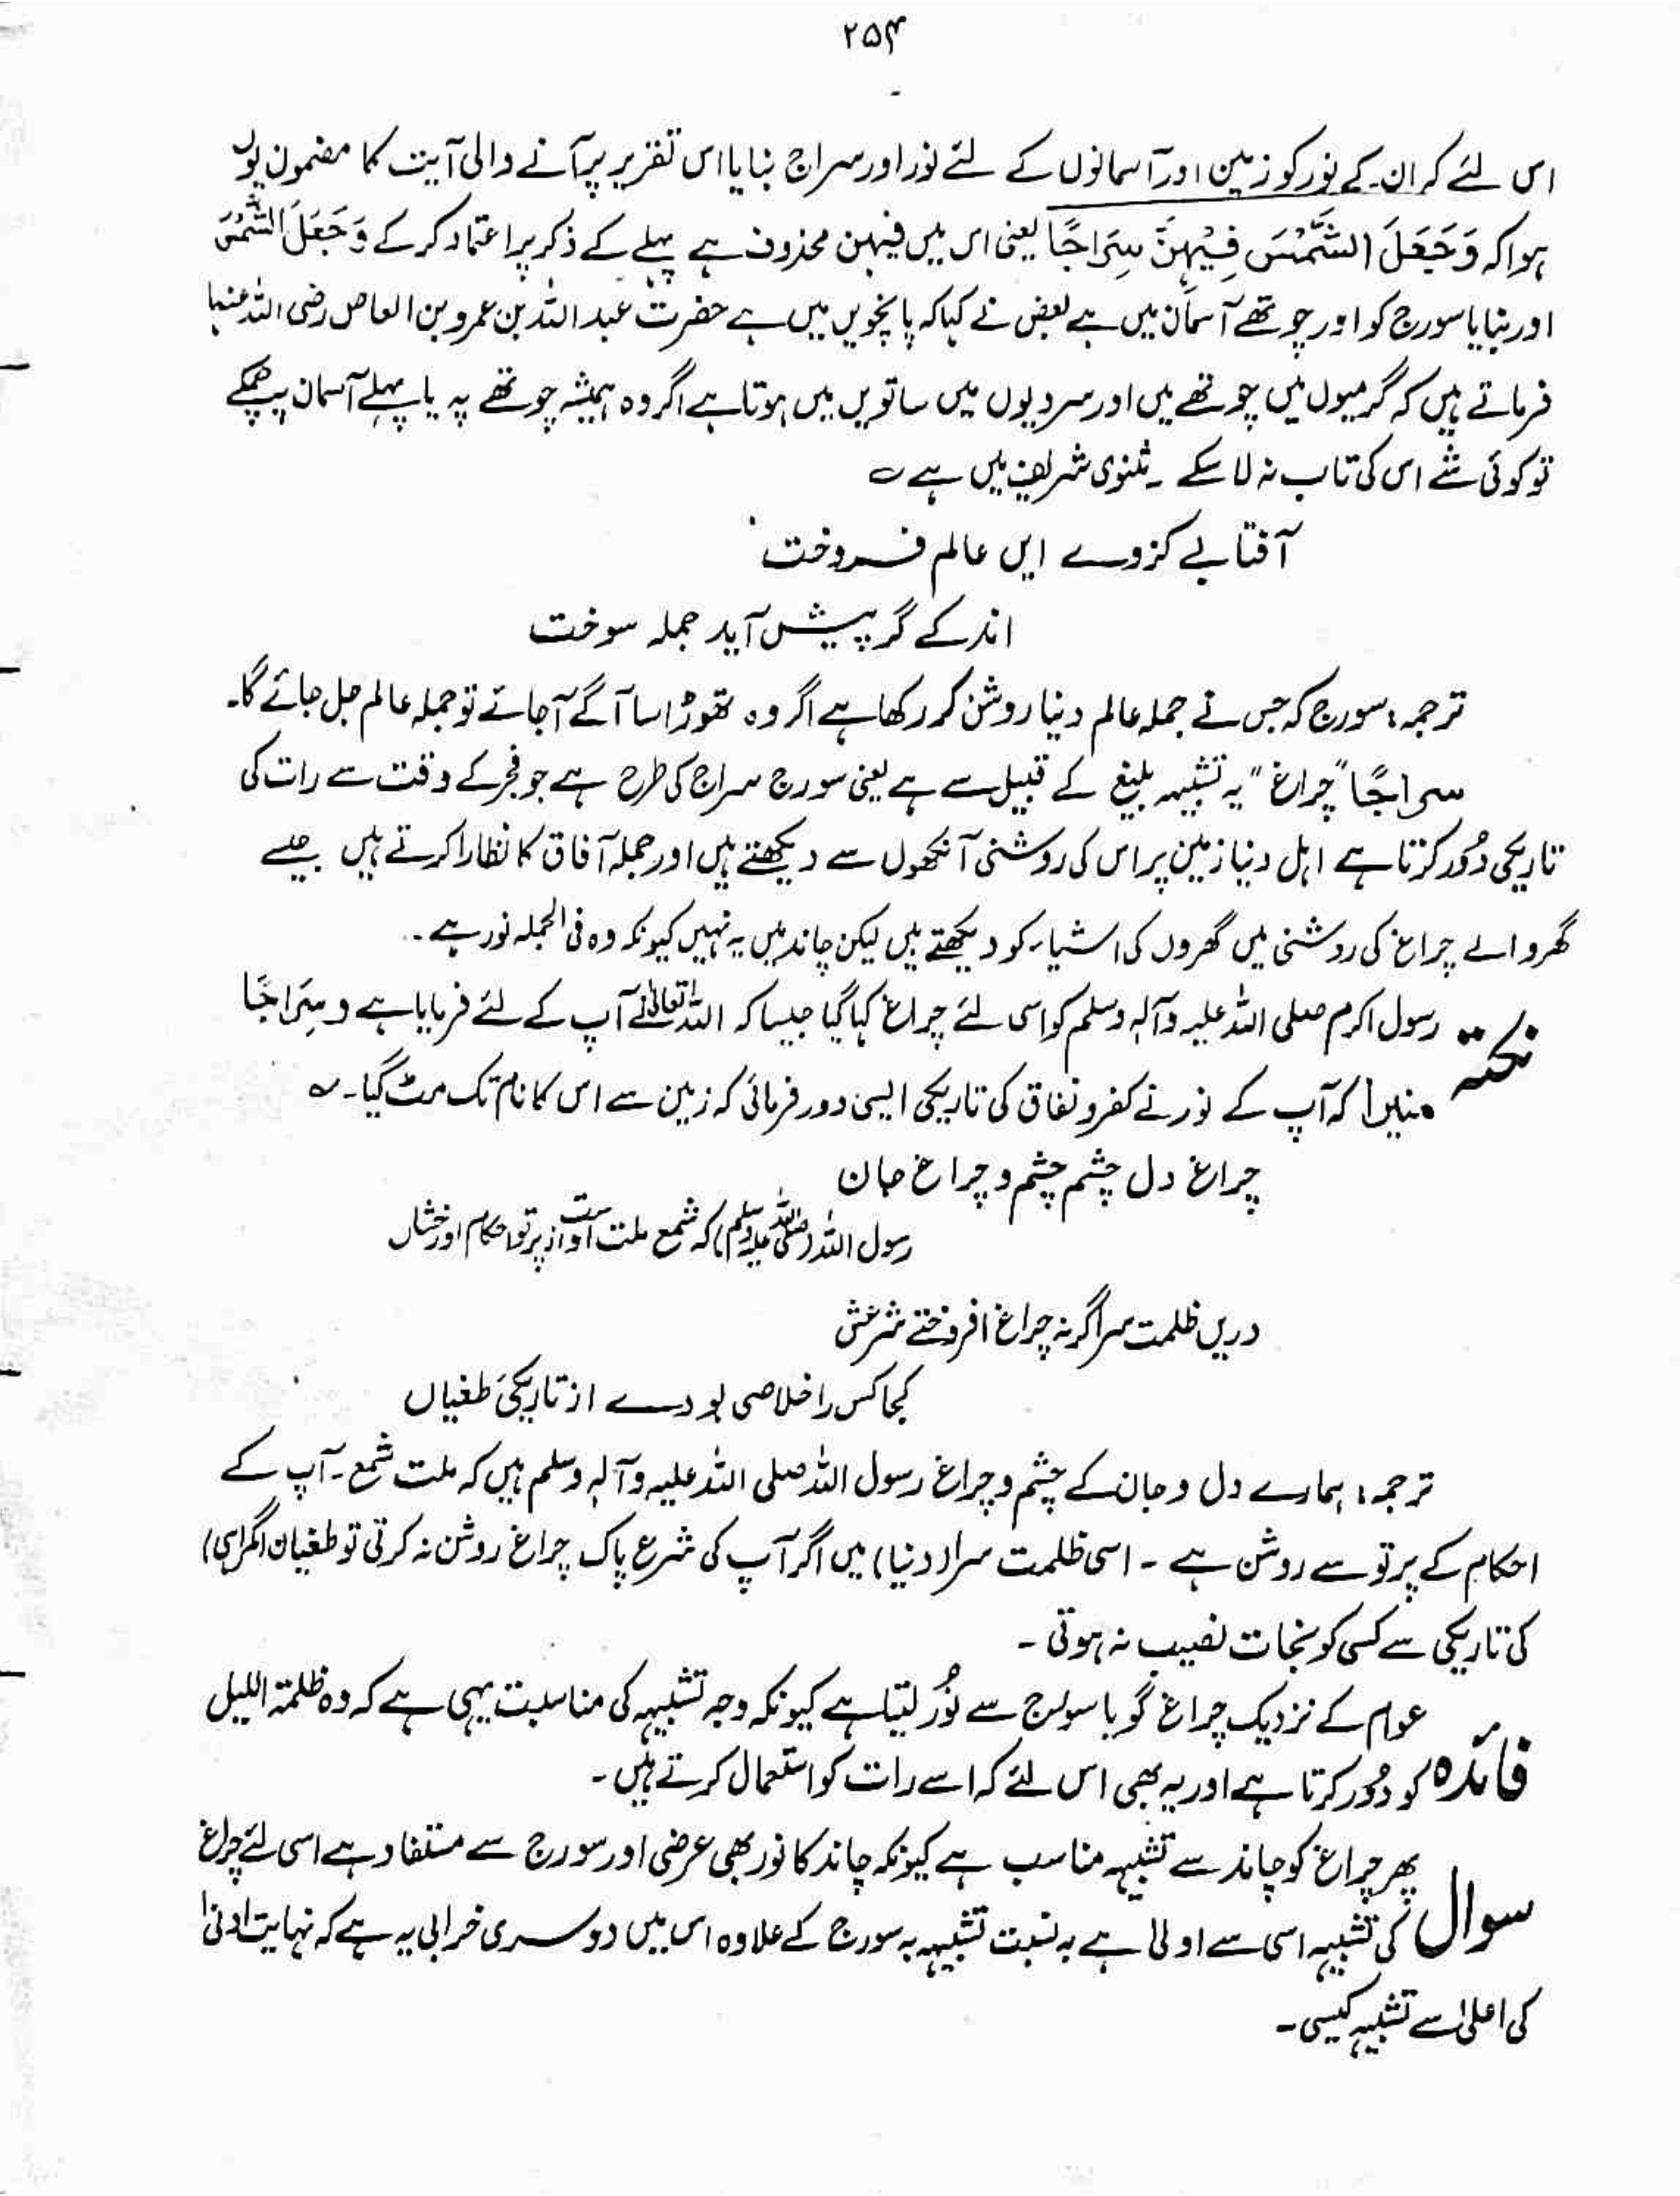 ۲۵۴
اس لئے کہ ان کے نور کو زمین اور آسمانوں کے لئے نور اور سراج بنایا اس تقریر پر آنے والی آیت کا مضمون یوں
ہوا کہ وَجَعَلَ الشَّمْسَ فِيْهِنَّ سِرَاجًا یعنی اس میں فیہن محذوف ہے پہلے کے ذکر پر اعتماد کر کے وَجَعَلَ الشَّمْسَ
اور بنایا سورج کو اور چوتھے آسمان میں ہے بعض نے کہا کہ پانچویں میں ہے حضرت عبد اللہ بن عمرو بن العاص رضی اللہ عنہا
فرماتے ہیں کہ گرمیوں میں چوتھے میں اور سردیوں میں ساتویں میں ہوتا ہے اگر وہ ہمیشہ چوتھے پہ یا پہلے آسمان پہ چمکے
تو کوئی شے اس کی تاب نہ لا سکے ۔ مثنوی شریف میں ہے ؎
آفتابے کزوے ایں عالم فروخت
اندکے گر پیش آید جملہ سوخت
ترجمہ: سورج کہ جس نے جملہ عالم دنیا روشن کر رکھا ہے اگر وہ تھوڑا سا آگے آجائے تو جملہ عالم جل جائے گا۔
سراجًا "چراغ" یہ تشبیہہ بلیغ کے قبیل سے ہے یعنی سورج سراج کی طرح ہے جو فجر کے وقت سے رات کی
تاریکی دُور کرتا ہے اہل دنیا زمین پر اس کی روشنی آنکھوں سے دیکھتے ہیں اور جملہ آفاق کا نظارا کرتے ہیں جیسے
گھر والے چراغ کی روشنی میں گھروں کی اشیاء کو دیکھتے ہیں لیکن چاند میں یہ نہیں کیونکہ وہ فی الجملہ نور ہے۔
نکتہ رسول اکرم صلی اللہ علیہ وآلہ وسلم کو اسی لئے چراغ کہا گیا جیسا کہ اللہ تعالیٰ نے آپ کے لئے فرمایا ہے و سِرَاجًا
منیرا کہ آپ کے نور نے کفر و نفاق کی تاریکی ایسی دور فرمائی کہ زمین سے اس کا نام تک مٹ گیا۔ ؎
چراغ دل چشم چشم و چراغ جان
رسول اللہ (صلی اللہ علیہ وسلم) کہ شمع ملت است از پرتو احکام او رخشاں
دریں ظلمت سرا گر نہ چراغ افروختے شرعش
کجا کس را خلاصی بودے از تاریکیٔ طغیاں
ترجمہ: ہمارے دل و جان کے چشم و چراغ رسول اللہ صلی اللہ علیہ وآلہ وسلم ہیں کہ ملت شمع ۔ آپ کے
احکام کے پرتو سے روشن ہے ۔ اسی ظلمت سرا (دنیا) میں اگر آپ کی شرع پاک چراغ روشن نہ کرتی تو طغیان (گمراہی)
کی تاریکی سے کسی کو نجات نصیب نہ ہوتی ۔
فائدہ عوام کے نزدیک چراغ گویا سورج سے نُور لیتا ہے کیونکہ وجہ تشبیہہ کی مناسبت یہی ہے کہ وہ ظلمۃ اللیل
کو دُور کرتا ہے اور یہ بھی اس لئے کہ اسے رات کو استعمال کرتے ہیں ۔
سوال پھر چراغ کو چاند سے تشبیہہ مناسب ہے کیونکہ چاند کا نور بھی عرضی اور سورج سے مستفاد ہے اسی لئے چراغ
کی تشبیہہ اسی سے اولیٰ ہے بہ نسبت تشبیہہ بہ سورج کے علاوہ اس میں دوسری خرابی یہ ہے کہ نہایت ادنیٰ
کی اعلیٰ سے تشبیہہ کیسی ۔